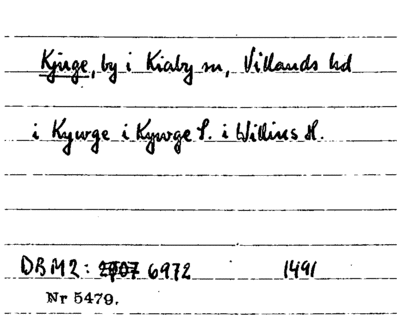 Kjuge, by i Kiaby sn, Villands hd
i Kywge i Kywge S. i Willins H.
DBM2: 6972 1491
Nr 5479.